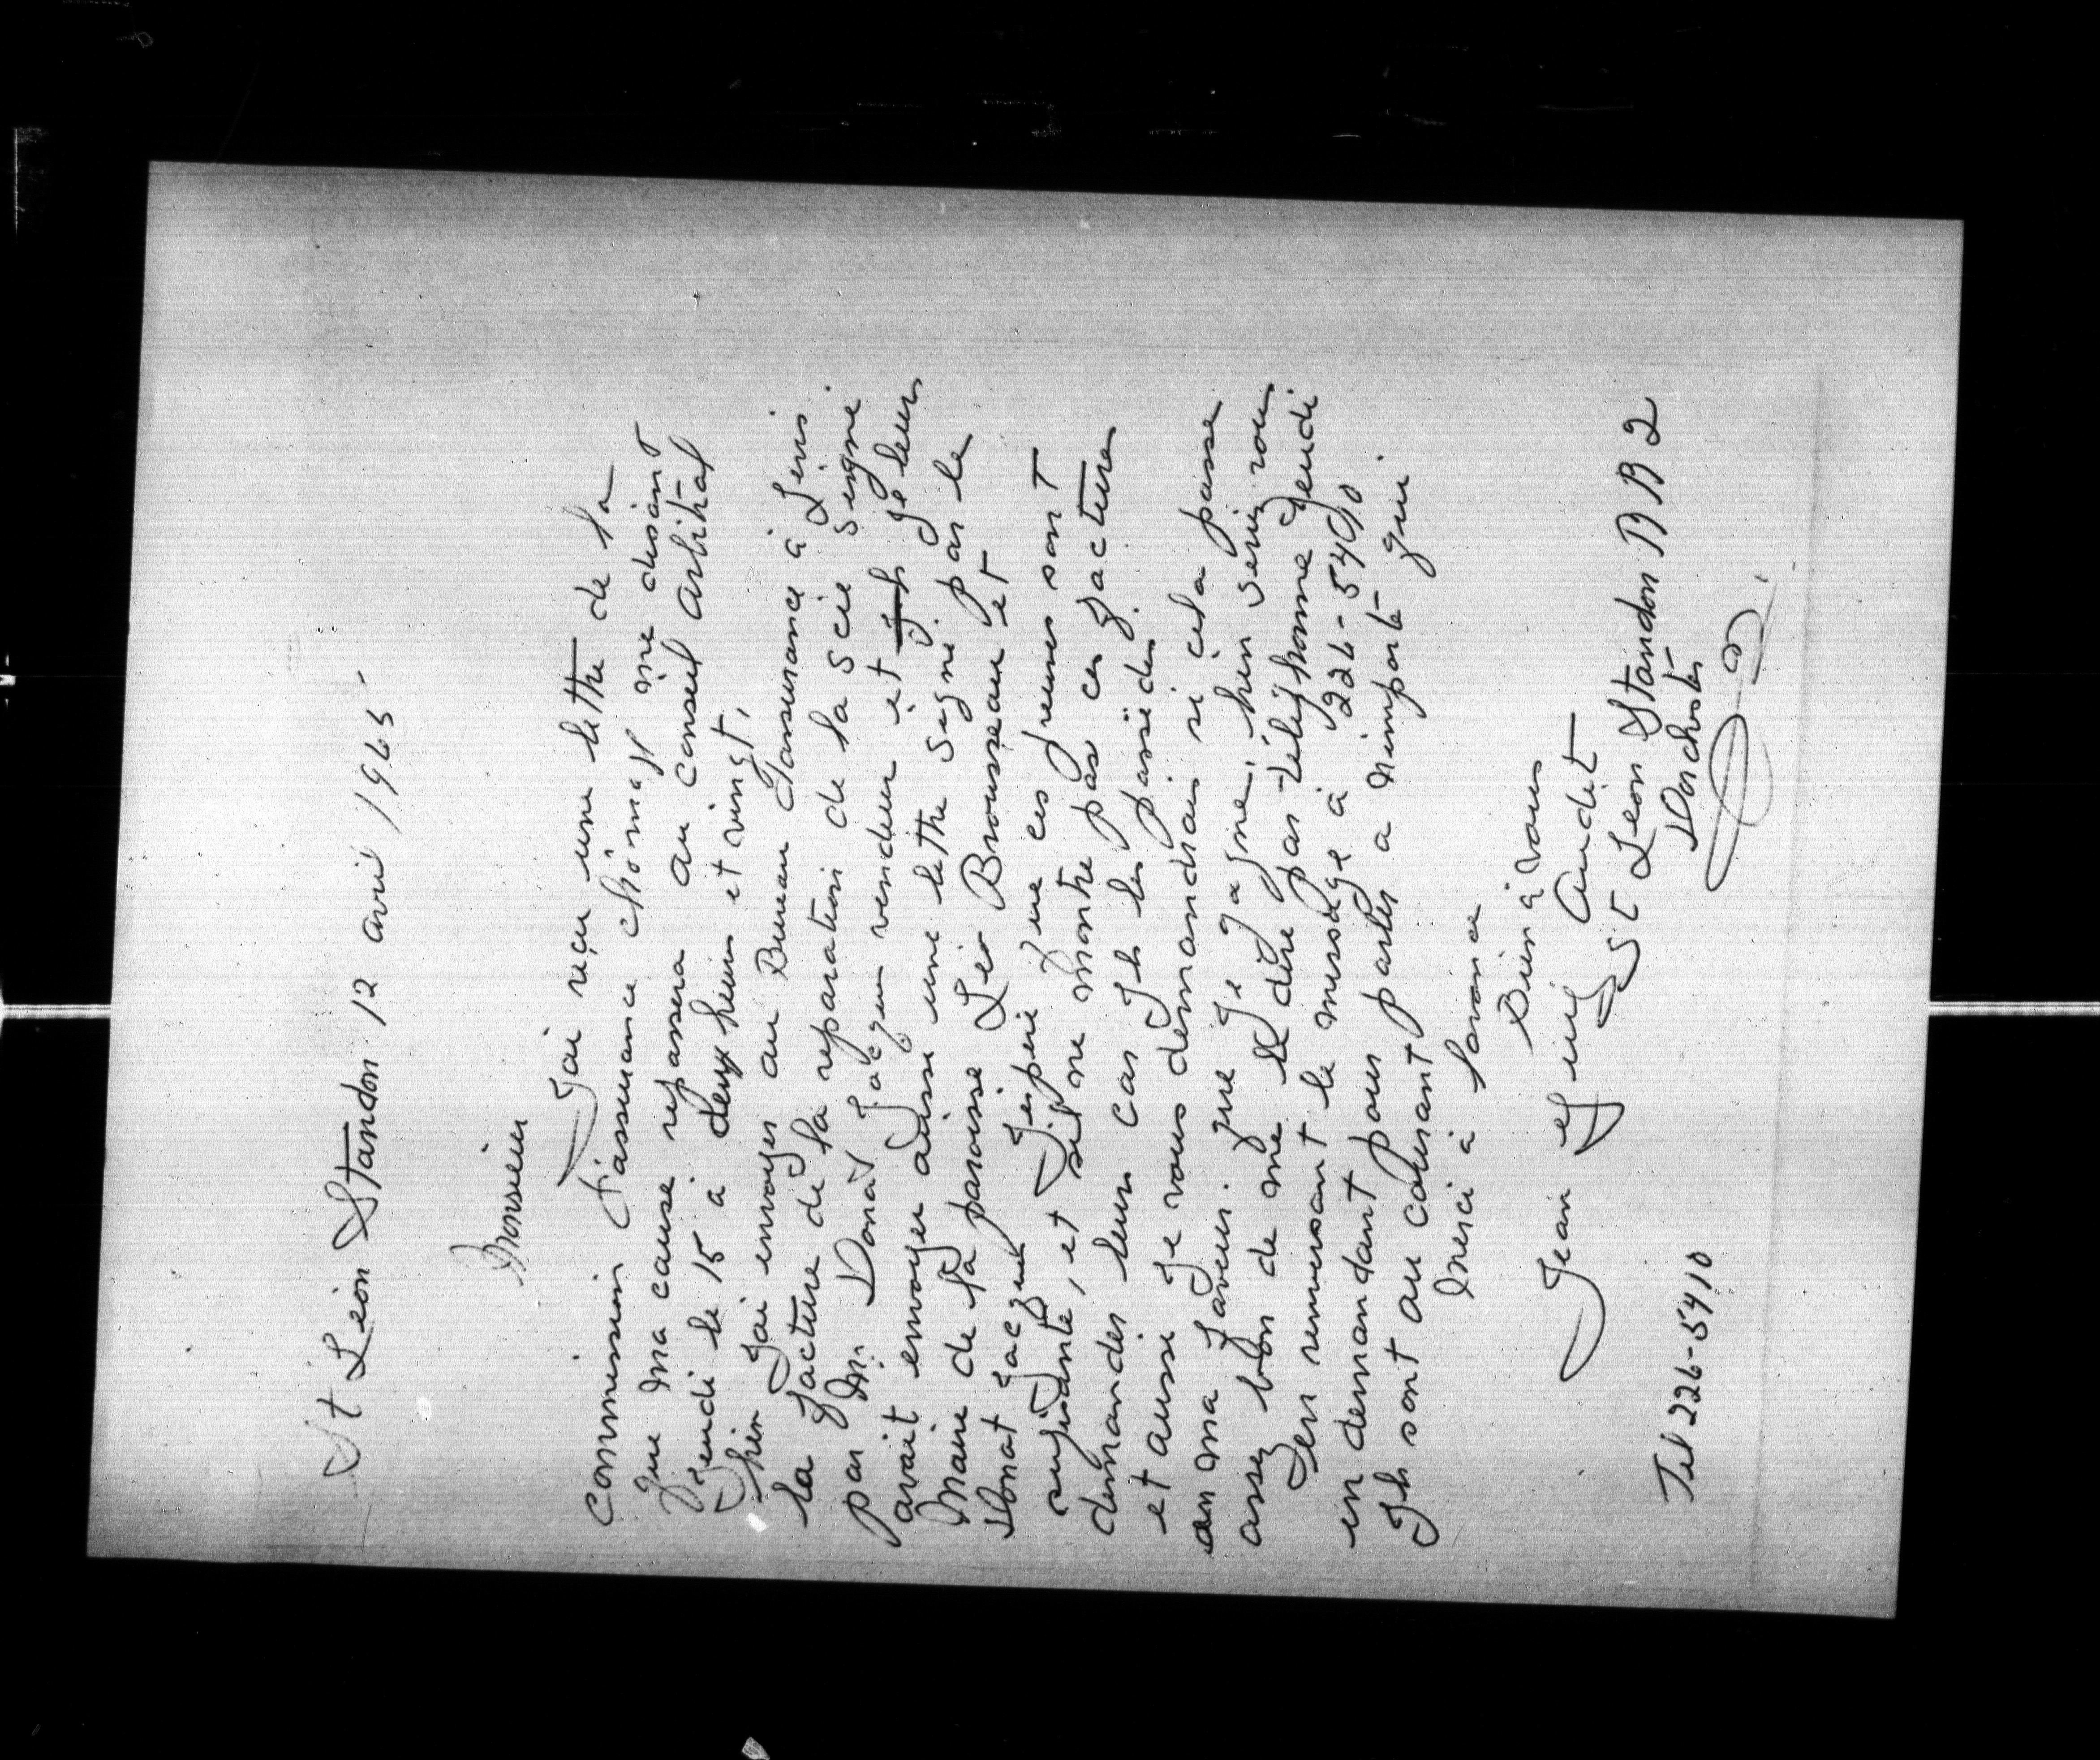 St Léon Standon 12 avril 1965
Monsieur
Jai reçu une lettre de la
commission d'assurance chômage me disant
que ma cause repassera au conseil Arbitral
jeudi le 15 a deux heures et vingt,
hier Jai envoyer au Bureau d'assurance à Lévis
la facture de la reparation de la scie signé
par M. Donat Jacques vendeur et Ils Je leurs
avait envoyer aussi une lettre signé par le
Maire de la paroisse Léo Brousseau et
Donat Jacques Jespère que ces preuves sont
suffisante, et sil ne montre pas ces factures
demander leurs car Ils les possèdes.
et aussi Je vous demandrais si cela passe
en ma faveur. que Je gagne, bien seriez vous
assez bon de me le dire par téléphonne Jeudi
en renversant le message à 226-5410
en demandant pour parler a nimporte qui
Ils sont au courant
Merci à lavance
Bien à vous
Jean Audet
St Léon Standon R R 2
Dorchester
Tel 226-5410